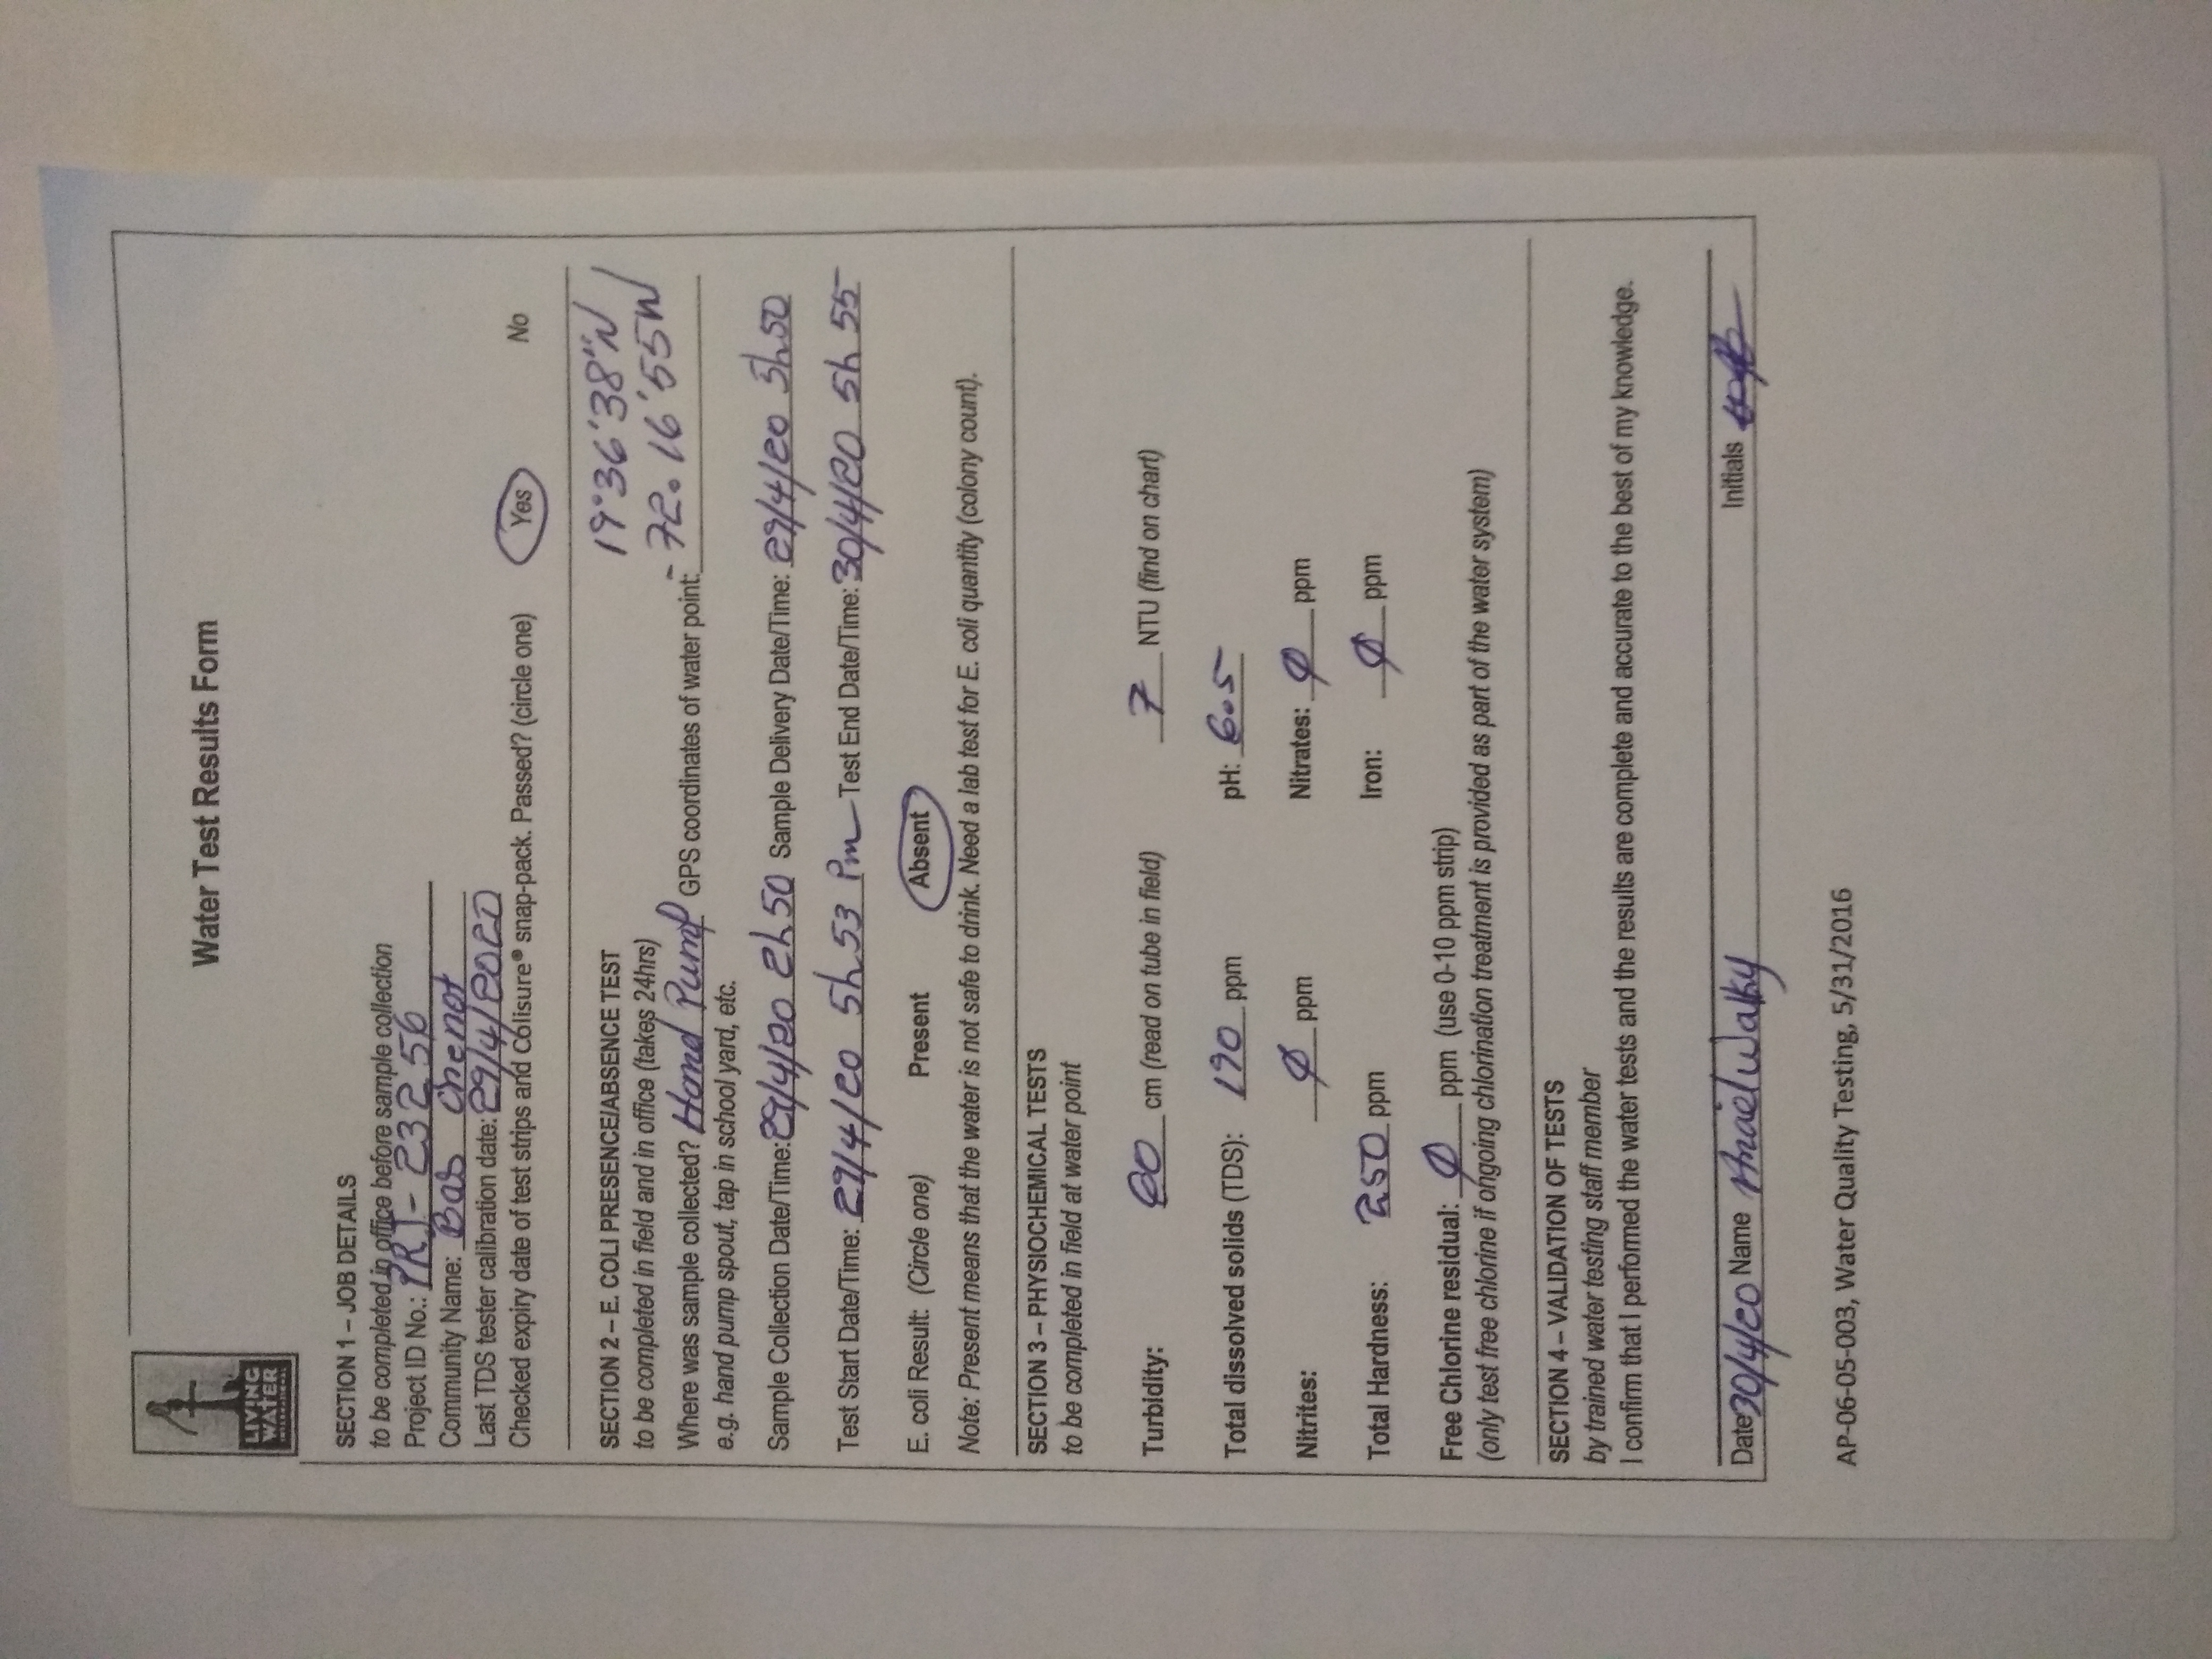 LIVING
WATER
INTERNATIONAL
Water Test Results Form
SECTION 1 – JOB DETAILS
to be completed in office before sample collection
Project ID No.: PRJ- 23256
Community Name: Bas Chenot
Last TDS tester calibration date: 29/4/2020
Checked expiry date of test strips and Colisure® snap-pack. Passed? (circle one) Yes No
SECTION 2 – E. COLI PRESENCE/ABSENCE TEST 19°36'38"N
to be completed in field and in office (takes 24hrs)
Where was sample collected? Hand Pump GPS coordinates of water point: -72.16'55W
e.g. hand pump spout, tap in school yard, etc.
Sample Collection Date/Time: 29/4/20 2h50 Sample Delivery Date/Time: 29/4/20 5h50
Test Start Date/Time: 29/4/20 5h 53 Pm Test End Date/Time: 30/4/20 5h 55
E. coli Result: (Circle one) Present Absent
Note: Present means that the water is not safe to drink. Need a lab test for E. coli quantity (colony count).
SECTION 3 – PHYSIOCHEMICAL TESTS
to be completed in field at water point
Turbidity: 60 cm (read on tube in field) 7 NTU (find on chart)
Total dissolved solids (TDS): 190 ppm pH: 6.5
Nitrites: Ø ppm Nitrates: Ø ppm
Total Hardness: 250 ppm Iron: Ø ppm
Free Chlorine residual: Ø ppm (use 0-10 ppm strip)
(only test free chlorine if ongoing chlorination treatment is provided as part of the water system)
SECTION 4 – VALIDATION OF TESTS
by trained water testing staff member
I confirm that I performed the water tests and the results are complete and accurate to the best of my knowledge.
Date 30/4/20 Name Walky Initials
AP-06-05-003, Water Quality Testing, 5/31/2016